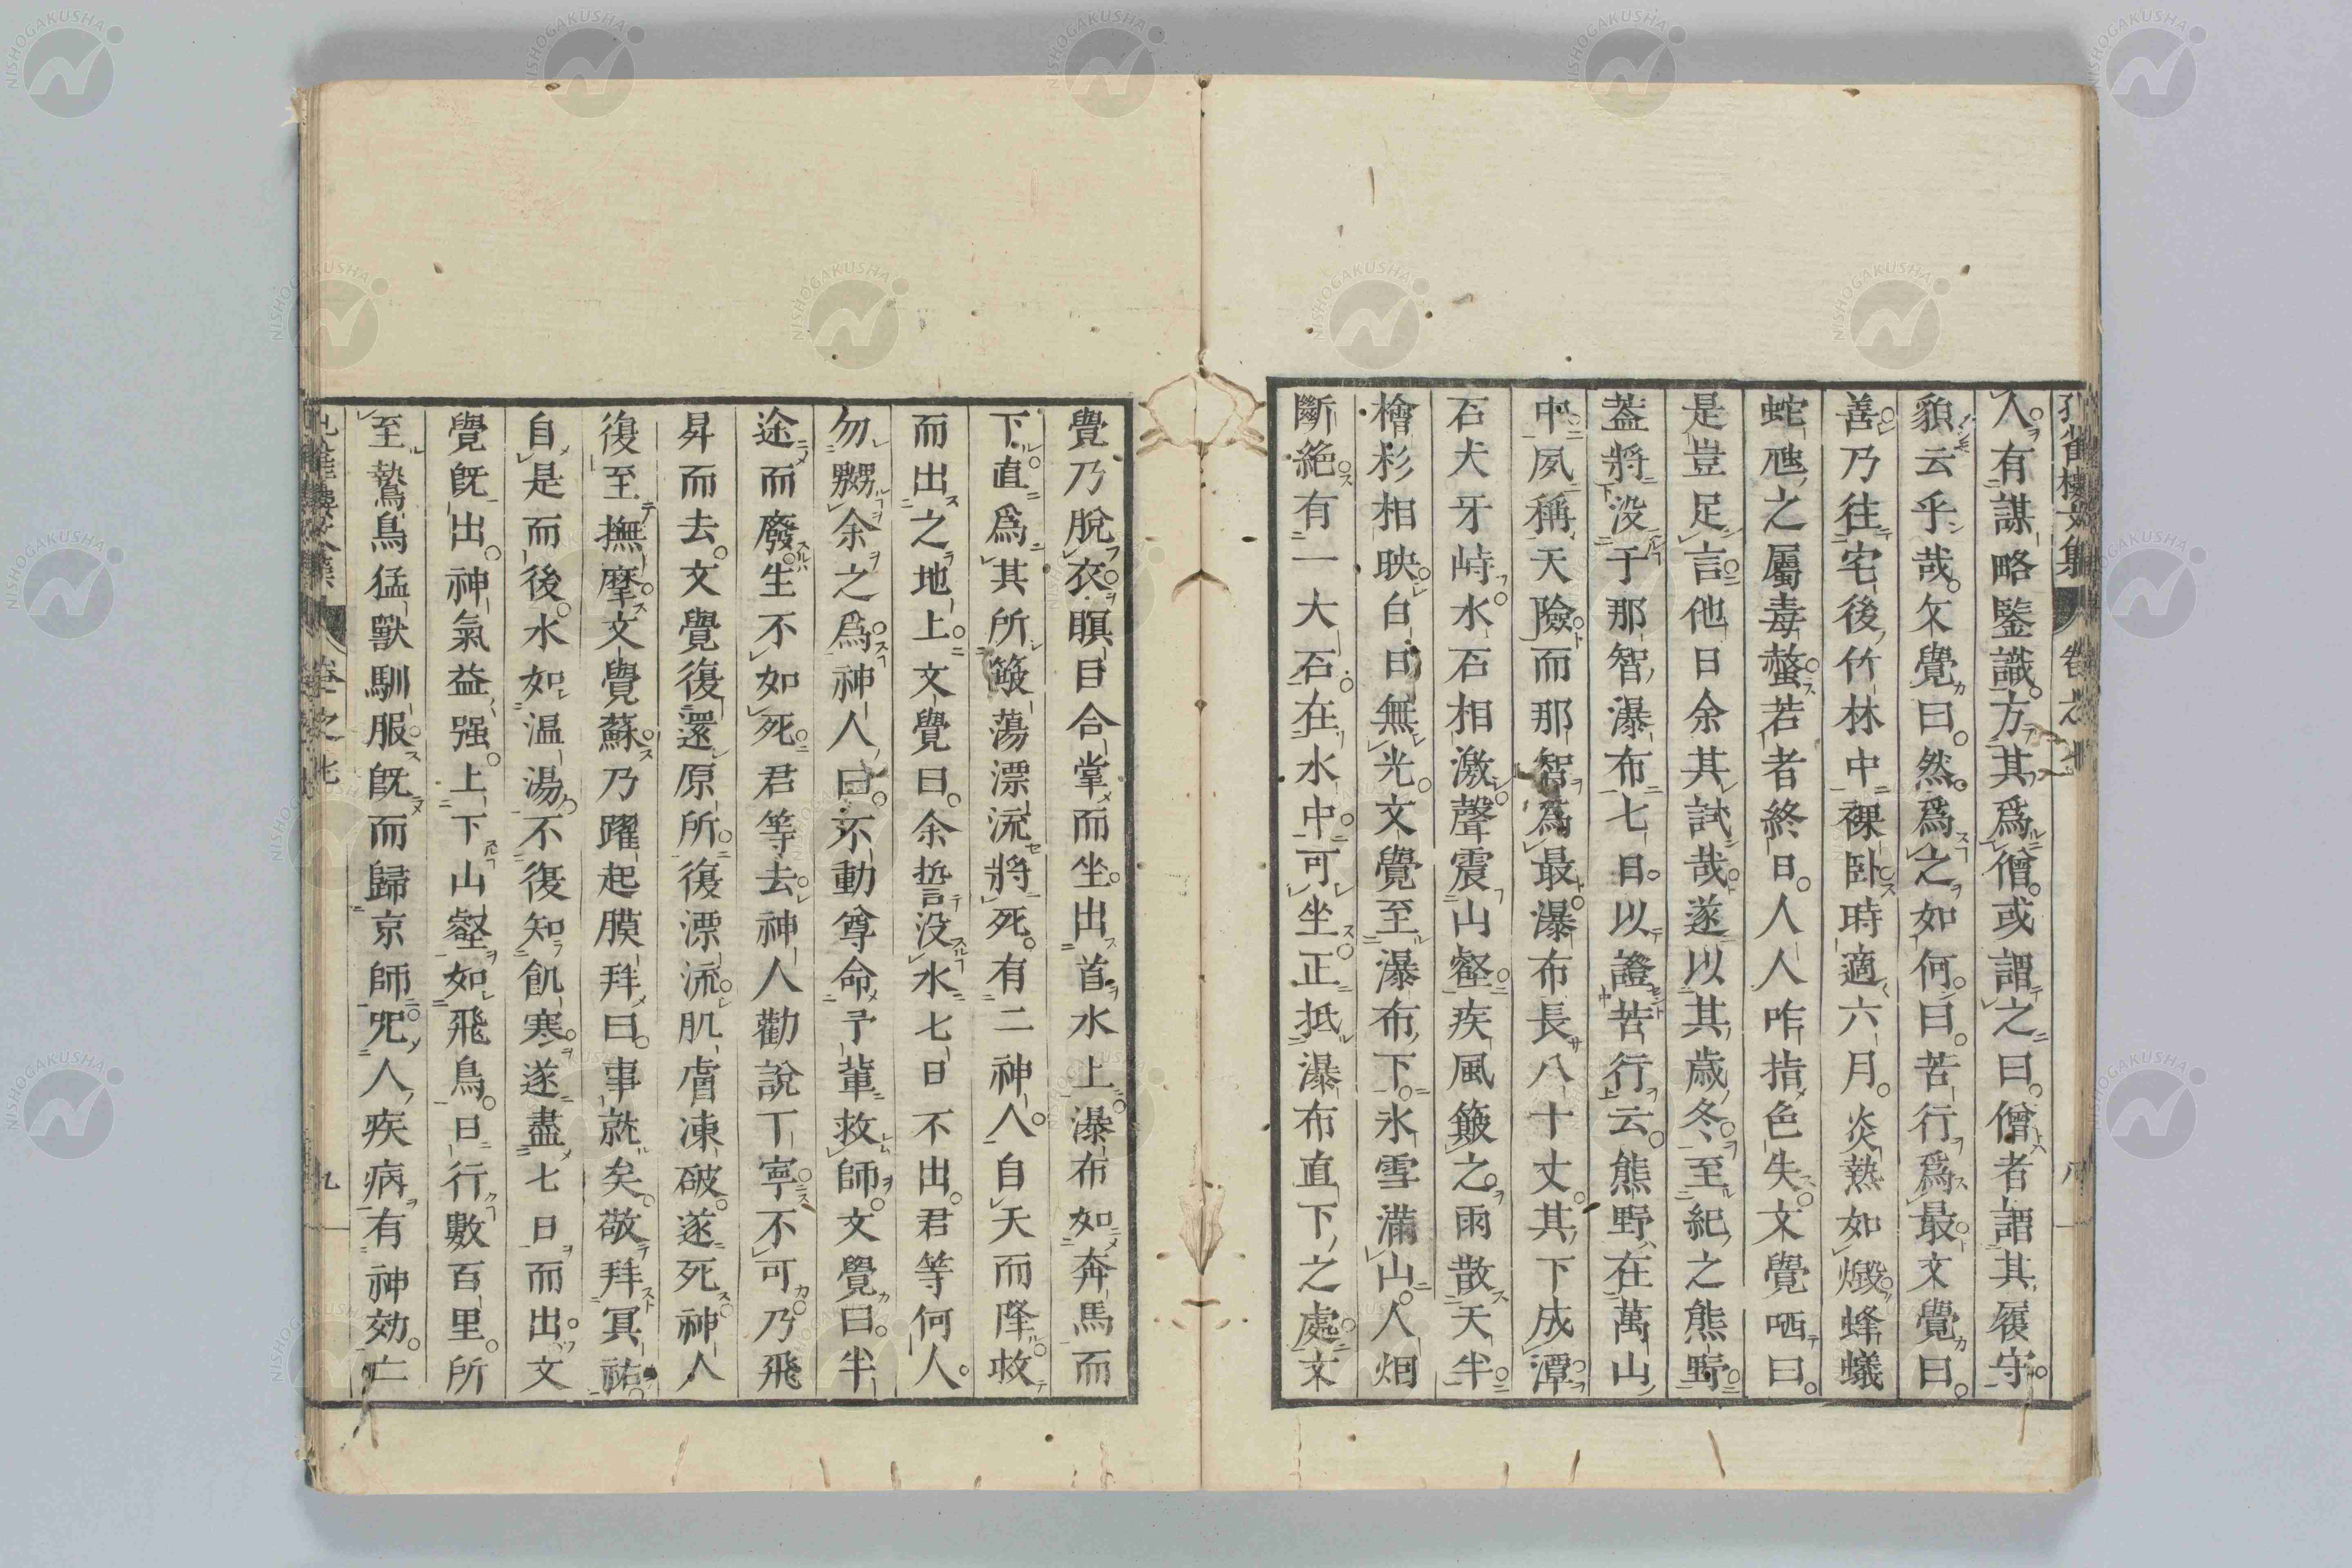 孔雀樓文集 卷之七
人有謀略鑒識方其爲僧或謂之曰僧者謂其履守
貌云乎哉文覺曰然爲之如何曰苦行爲最文覺曰
善乃往宅後竹林中裸臥時適六月炎熱如燬蜂蟻
蛇虺之屬毒螫若者終日人人咋指色失文覺哂曰
是豈足言他日余其試哉遂以其歲冬至紀之熊野
葢將没于那智瀑布七日以證苦行云熊野在萬山
中夙稱天險而那智爲最瀑布長八十丈其下成潭
石犬牙峙水石相激聲震山壑疾風簸之雨散天半
檜杉相映白日無光文覺至瀑布下氷雪滿山人烟
斷絶有一大石在水中可坐正抵瀑布直下之處文
覺乃脫衣瞑目合掌而坐出首水上瀑布如奔馬而
下直爲其所簸蕩漂流將死有二神人自天而降救
而出之地上文覺曰余誓没水七日不出君等何人
勿嬲余之爲神人曰不動尊命予輩救師文覺曰半
途而廢生不如死君等去神人勸說丁寧不可乃飛
昇而去文覺復還原所復漂流肌膚凍破遂死神人
復至撫摩文覺蘇乃躍起膜拜曰事就矣敬拜冥祐
自是而後水如温湯不復知飢寒遂盡七日而出文
覺旣出神氣益强上下山壑如飛鳥日行數百里所
至鷙鳥猛獸馴服旣而歸京師咒人疾病有神効亡
卷之七 九